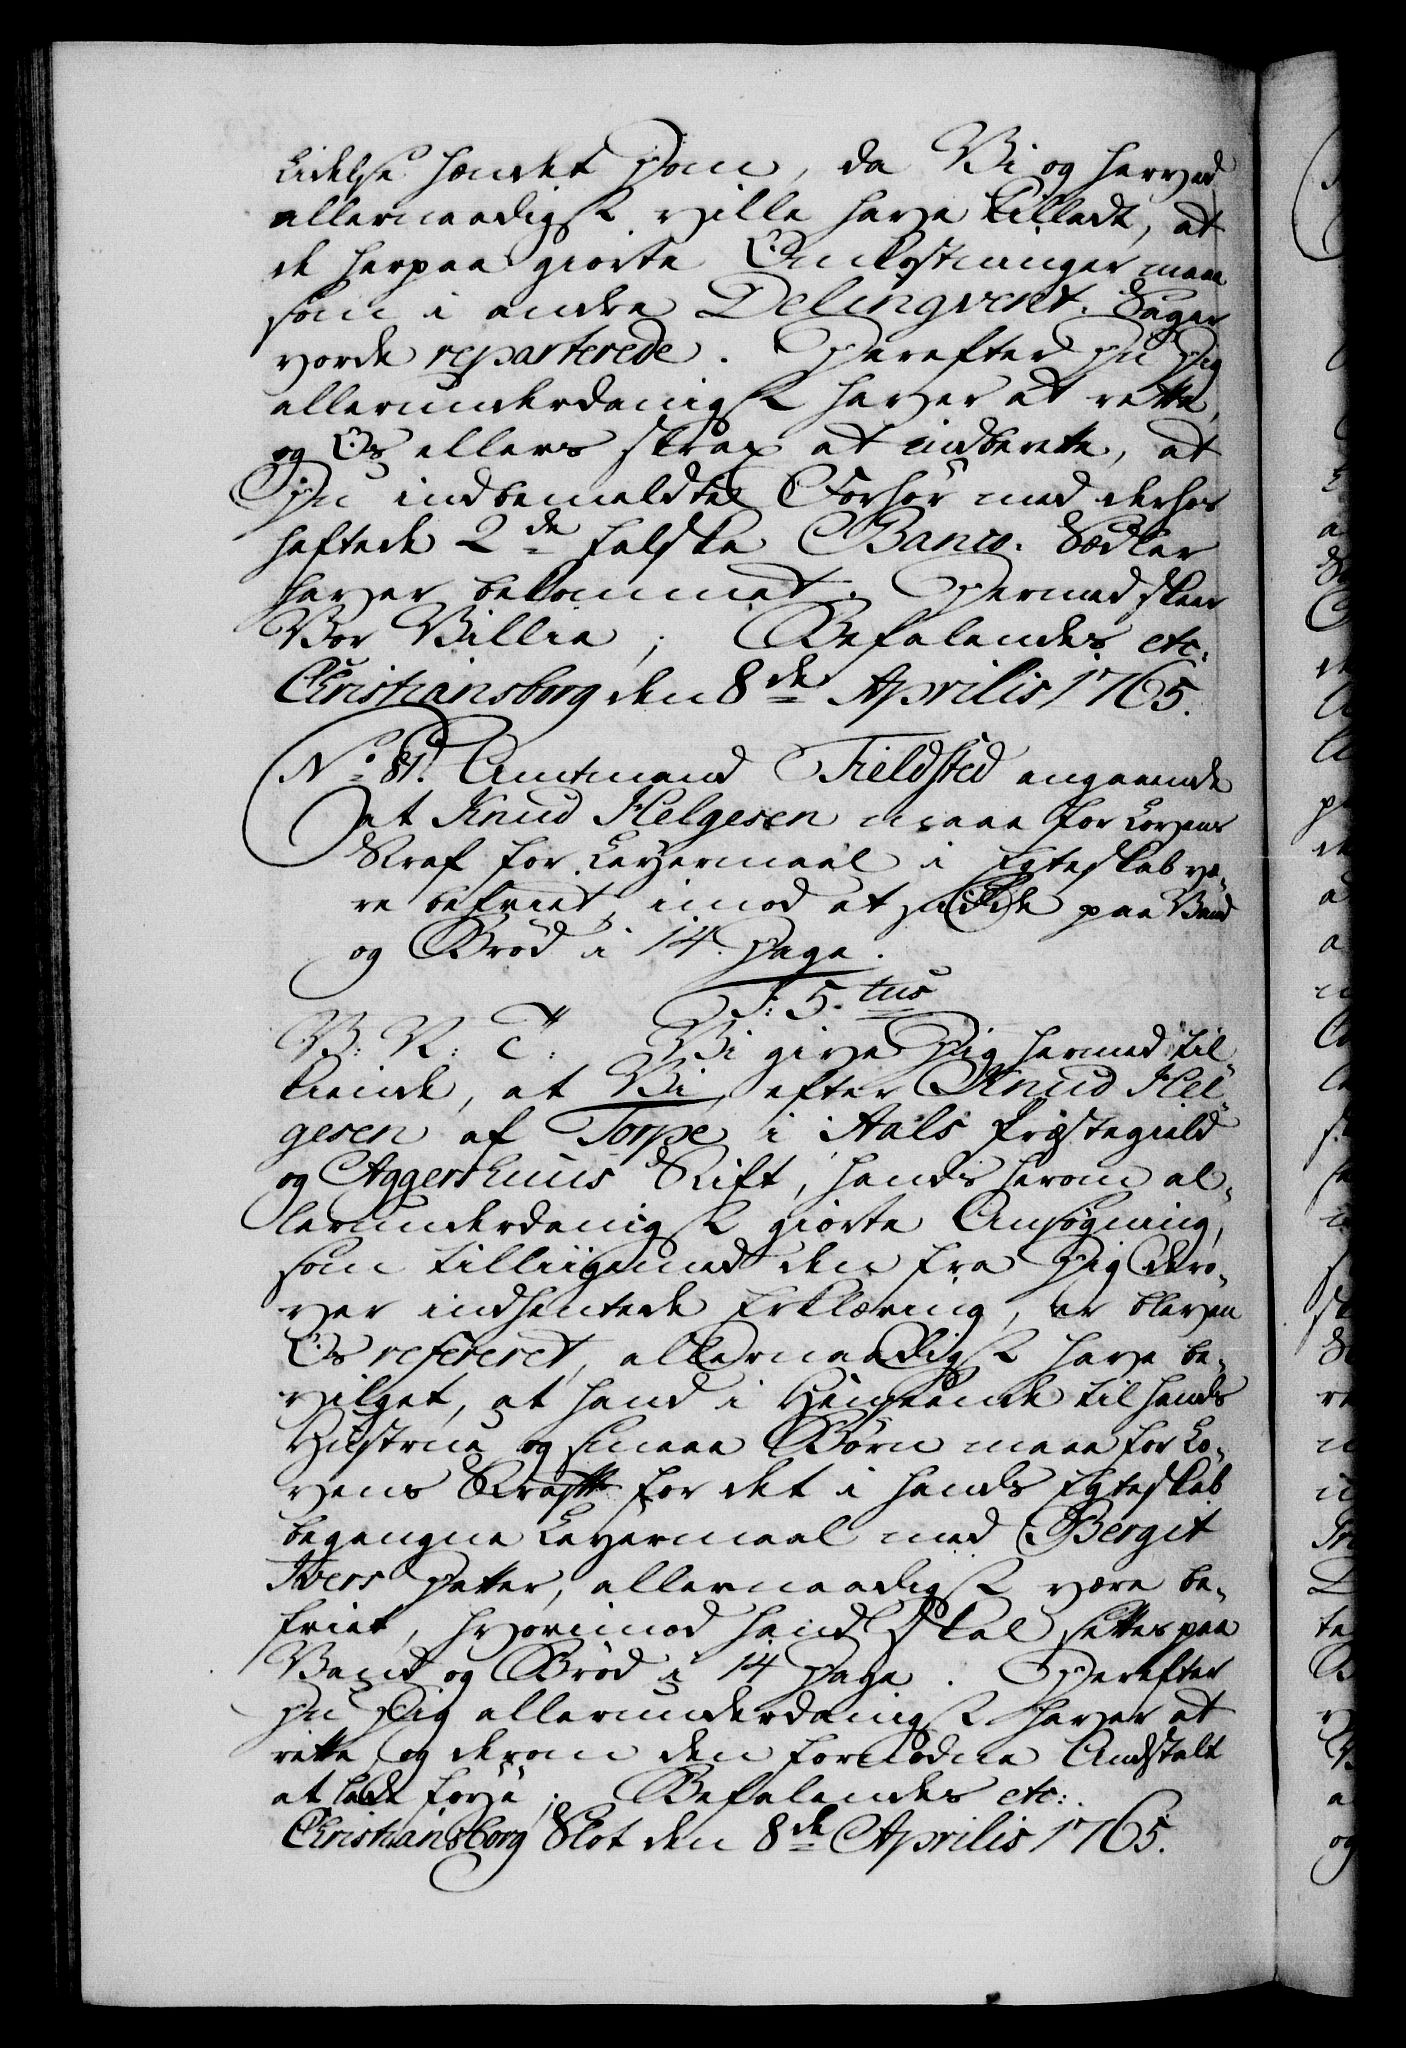 Lidelse hændet Dom, da Vi og herved
allernaadigst ville have tilladt, at
de herpaa giorte Omkostninger maae
som i andre Delinqvent-Sager
vorde reparterede. Derefter Du Dig
allerunderdanigst haver at rette,
og Os ellers strax at indberette, at
Du indbemeldte Forhør med derhos
heftede 2de falske Banco-Sedler
haver bekommet. Dermed skeer
Vor Villie; Befalendes etc.
Christiansborg den 8de Aprilis 1765.
No 81. Amtmand Fieldsted angaaende
at Knud Helgesen maae for Lovens
Straf for Leyermaal i Egteskab væ-
re befriet, imod at sidde paa Vand
og Brød i 14. Dage.
F: 5.tus
V: R: T: Vi give Dig hermed til-
kiende, at Vi, efter Knud Hel-
gesen af Torpe i Aals Præstegield
og Aggershuus Stift, hands herom al-
lerunderdanigst giorte Ansøgning,
som tilligemed den fra Dig dero-
ver indhentede Erklæring, er bleven
Os refereret, allernaadigst have be-
vilget, at hand i Henseende til hands
Hustrue og smaae Børn maae for Lo-
vens Straff for det i hands Egteskab
begangne Leyermaal med Bergit
Ivers Datter, allernaadigst være be-
friet, hvorimod hand skal settes paa
Vand og Brød i 14 Dage. Derefter
Du Dig allerunderdanigst haver at
rette og derom den fornødne Anstalt
at lade føye; Befalendes etc:.
Christiansborg Slot den 8de Aprilis 1765.